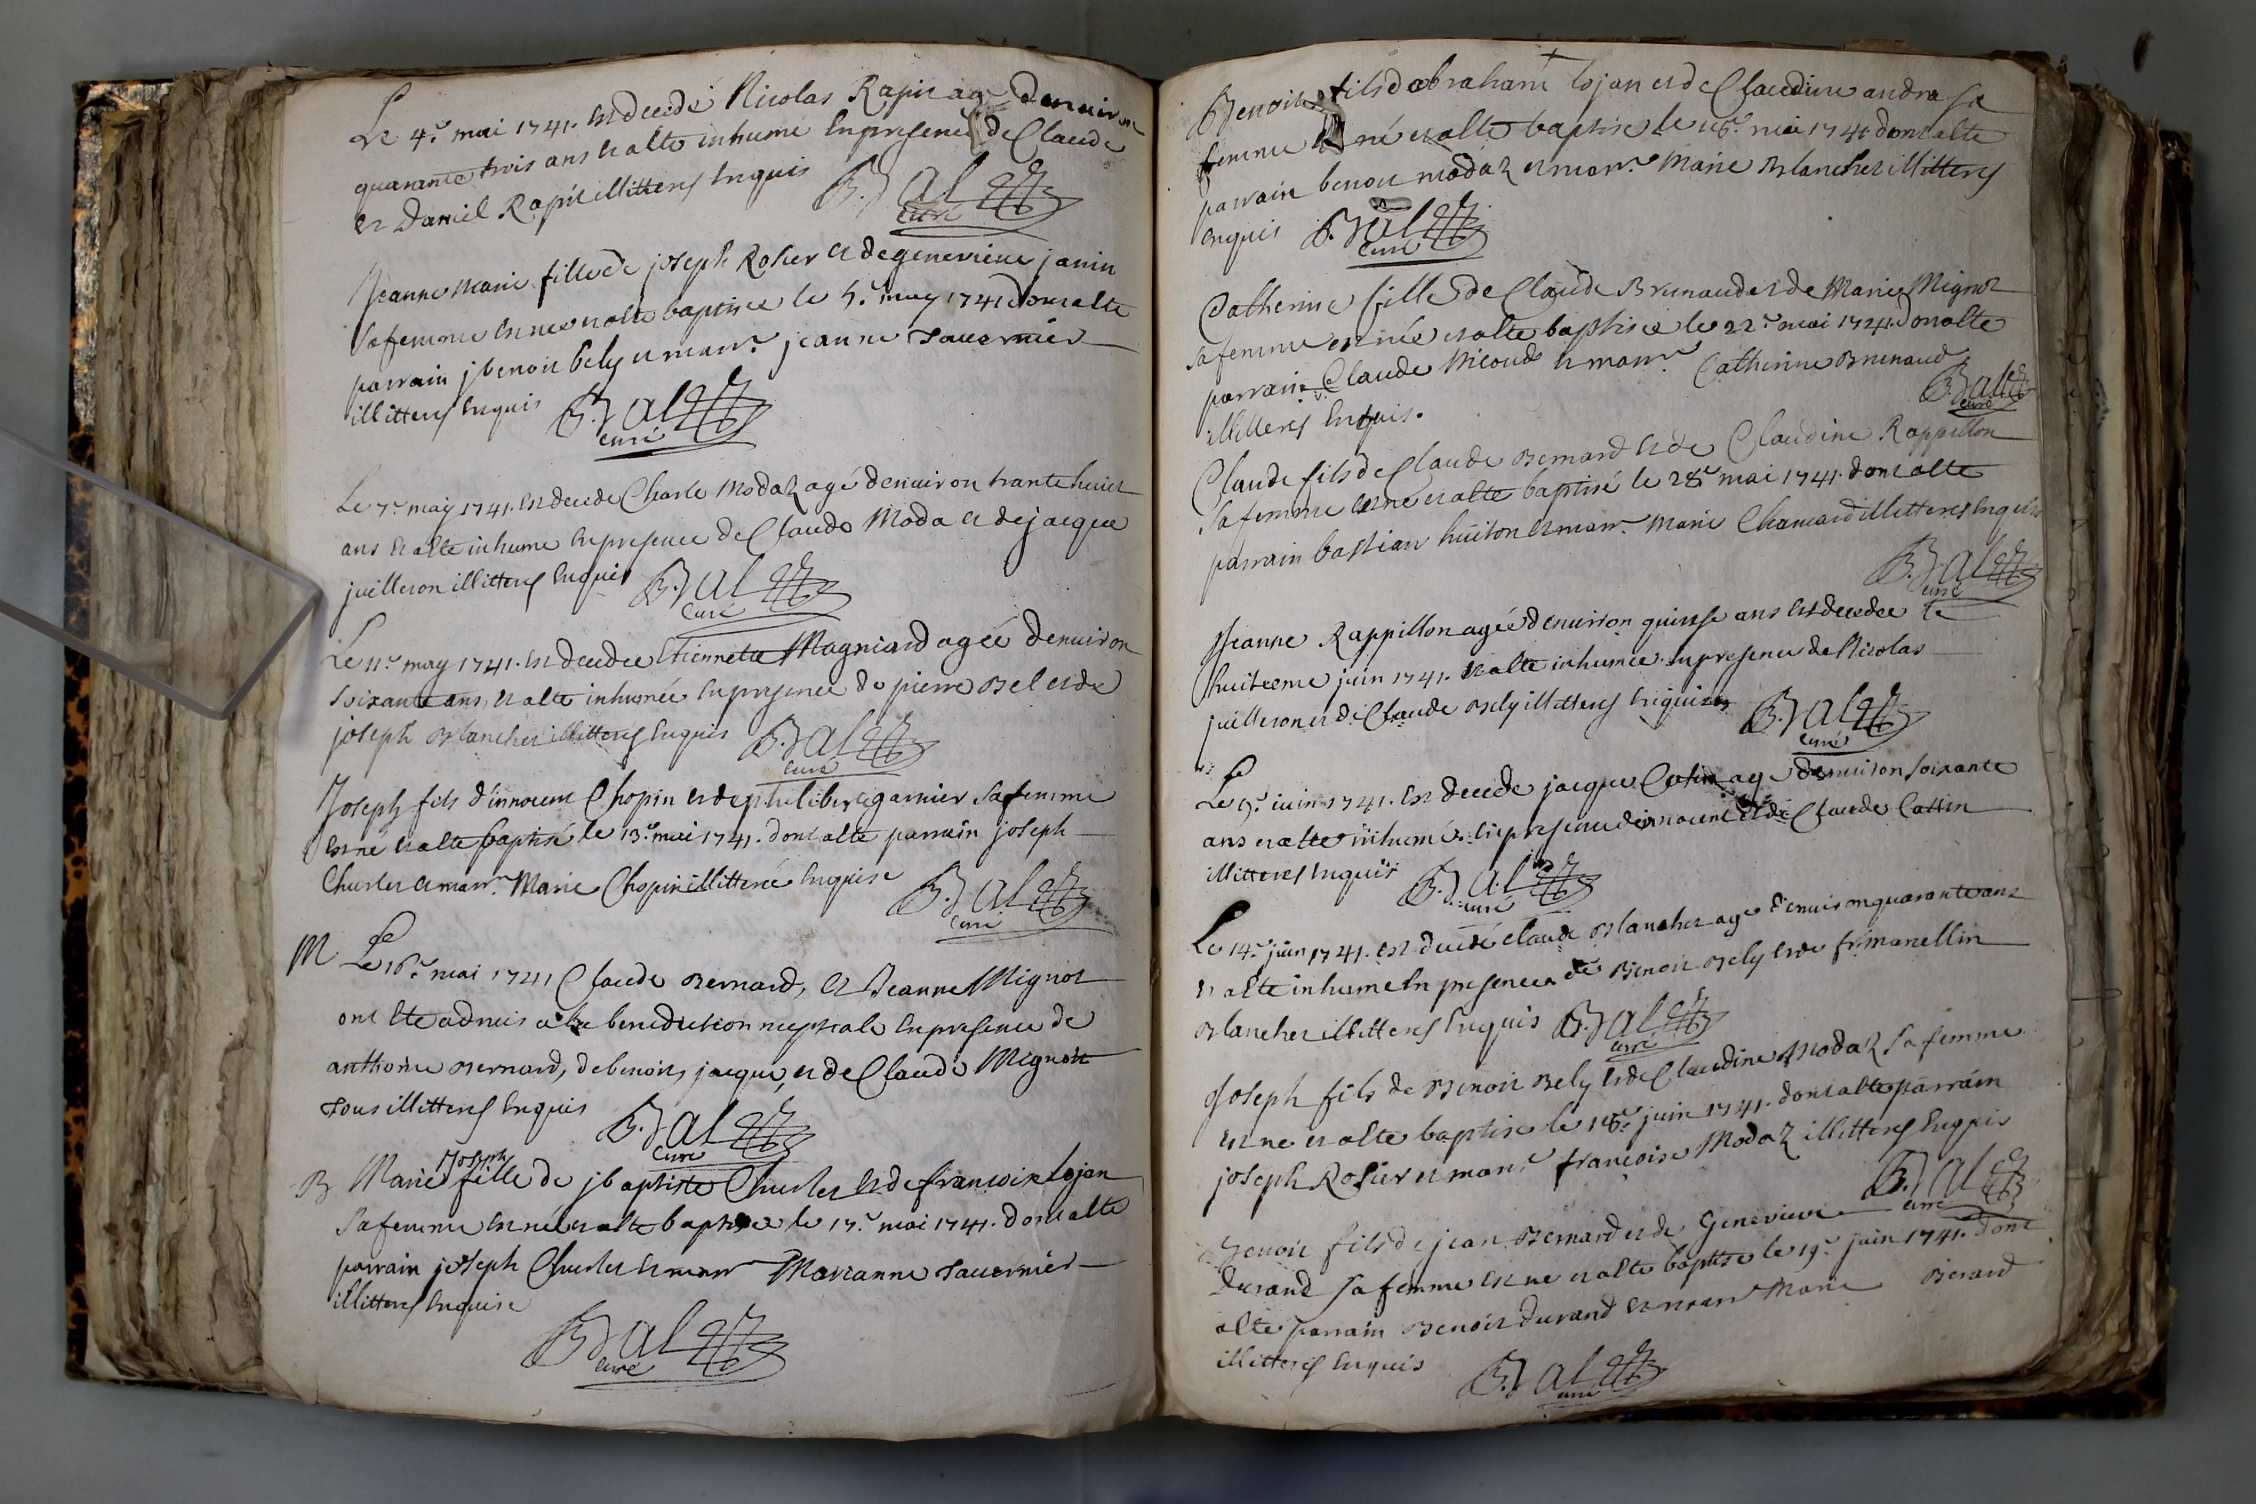 Le 4.e mai 1741. est decedé Nicolas Rapit agé denuiron
quarante trois ans et a été inhumé en presence de Claude
et Daniel Rapit illitterés enquis
B. Bal curé
Jeanne Marie fille de joseph Rosier et de genevieve janin
sa femme est née et a été baptisée le 5.e may 1741 dont a été
parrain j benoit bely et marr.e jeanne Tavernier
illitterés enquis B. Bal
curé
Le 7.e may 1741. est decedé Charle Modaz agé denuiron trante huict
ans et a été inhumé en presence de Claude Moda et de jacque
juilleron illitterés enquis B. Bal
Curé
Le 11.e may 1741. est decedée Etienneta Magniard agée denuiron
soixante ans, et a été inhumée en presence de pierre Bel et de
joseph Blanchet illitterés enquis B. Bal
curé
Joseph fils d'innocent Chopin et de philiberte garnier sa femme
est né et a été baptisé le 13.e mai 1741. dont a été parrain joseph
Charlet et marr.e Marie Chopin illitteré enquise B. Bal
curé
M. Le 16.e mai 1741 Claude Bernard, et Jeanne Mignot
ont été admis a la benediction nuptiale en presence de
anthoine Bernard, de benoit, jacque, et de Claude Mignot
Tous illitterés enquis B. Bal
Curé
Joseph
B Marie fille de j baptiste Charlet et de francoise Lojan
sa femme est née et a été baptisée le 17.e mai 1741. dont a été
parrain joseph Charlet et marr Marianne Tavernier
illitterés enquise
B Bal
curé
Benoit fils d'abraham Lojan et de Claudine andra sa
femme est né et a été baptisé le 18.e mai 1741 dont a été
parrain benoit modaz et marr.e Marie Blanchet illitterés
enquis B. Bal
Curé
Catherine fille de Claude Brunaud et de Marie Mignot
sa femme est née et a été baptisée le 22.e mai 1741. dont a été
parrain Claude Nicoud et marr.e Catherine Brunaud
illitterés enquis. B. Bal
curé
Claude fils de Claude Bernard et de Claudine Rappillon
sa femme est né et a été baptisé le 28.e mai 1741. dont a été
parrain bastian huiton et marr.e Marie Chamard illitterés enquis
B. Bal
curé
Jeanne Rappillon agée denuiron quinse ans est decedée le
huiteme juin 1741. et a été inhumée en presence de Nicolas
juilleron et de Claude Bely illitterés enquis B. Bal
curé
Le 9.e juin 1741. est decedé jacque Catin agé denuiron soixante
ans et a été inhumé en presence d'innocent et de Claude Cattin
illitterés enquis B. Bal
curé
Le 14.e juin 1741. est decedé claude Blanchet agé denuiron quarante ans
et a été inhumé en presence de Benoit Bely et de f. manellin
Blanchet illitterés enquis B. Bal
curé
Joseph fils de Benoit Bely et de Claudine Modaz sa femme
est né et a été baptisé le 18.e juin 1741. dont a été parrain
joseph Rosier et marr.e françoise Modaz illitterés enquis
B. Bal
curé
Benoit fils de jean Bernard et de Genevieve
Durand sa femme est né et a été baptisé le 19.e juin 1741. dont
a été parrain Benoit Durand et marr Marie Berard
illitterés enquis B. Bal
curé